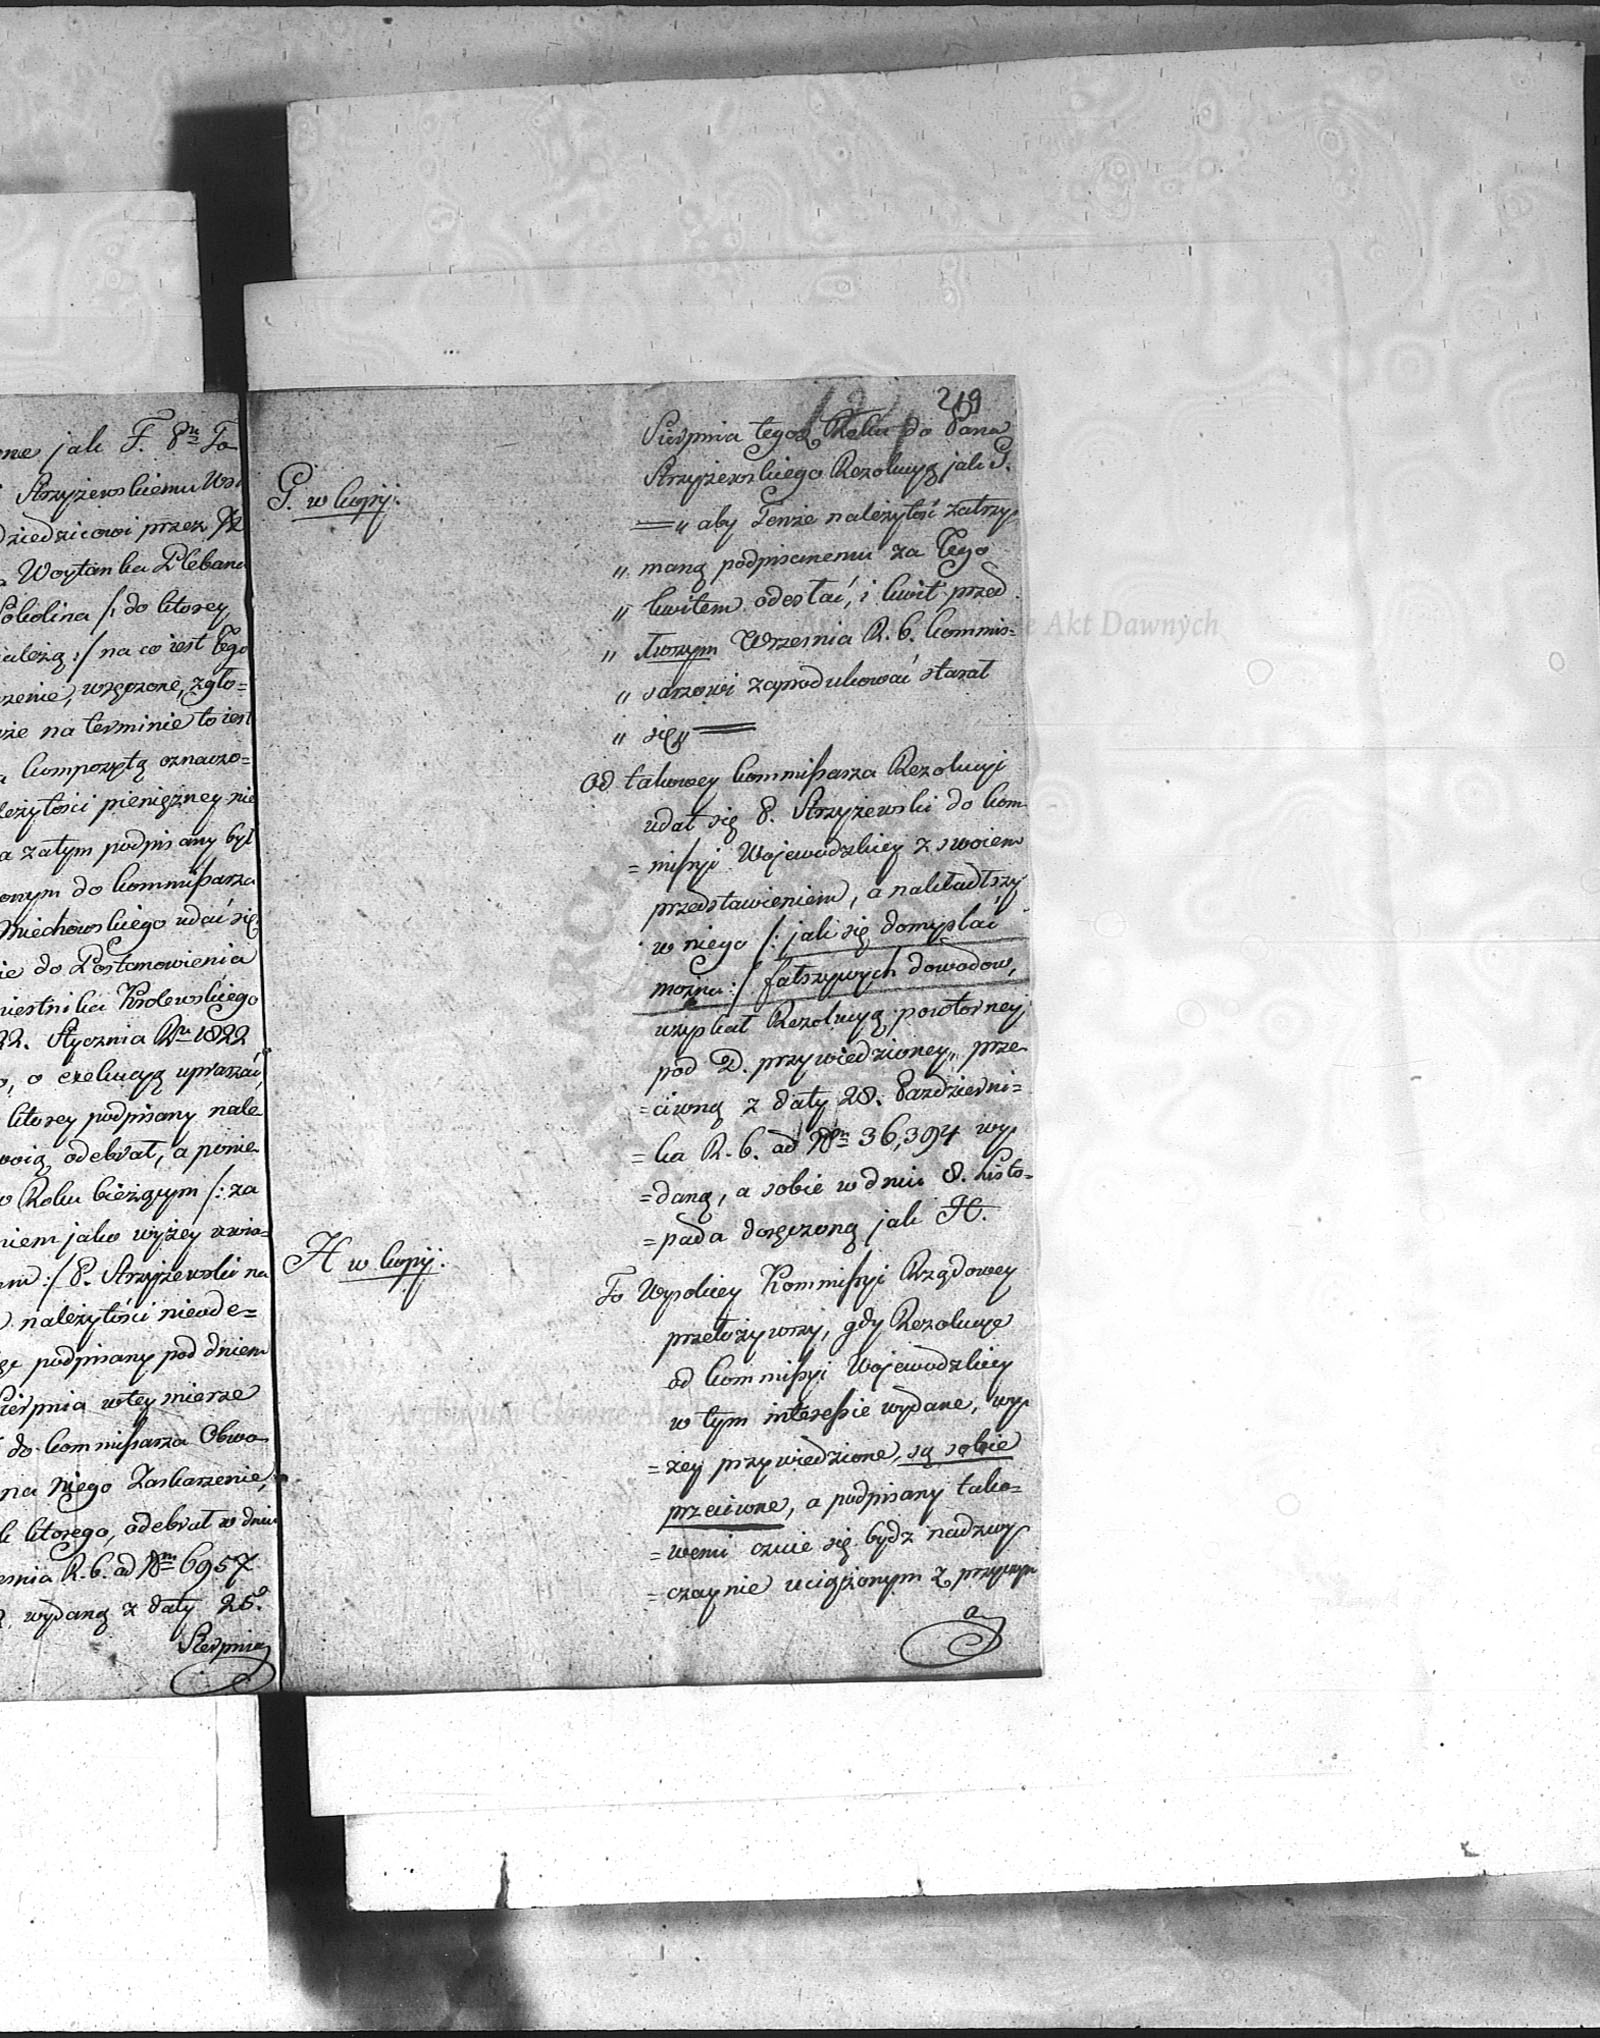 one jak F. 8n To
Strzyżewskiemu Wsi
Dziedzicowi przez
Woytanka Plebana
Sokolina /: do ktorey
należą :/ na co iest tego
wręczone, zgło=
że na terminie to iest
kompozytą oznaczo=
należytości pieniężney nie
a zatym podpisany był
onym do kommissarza
Miechowskiego udać się
ie do Postanowienia
miestnika Krolewskiego
22. Stycznia Rn 1822
o, o exekucyą upraszać,
ktorey podpisany nale
swoią odebrał, a ponie
w Roku bieżącym /: za
niem jako wyżey
:/ P. Strzyżewski na
należytości nieode=
podpisany pod dniem
Sierpnia w tey mierze
do kommissarza Obwo
na niego Zaskarzenie,
k ktorego, odebrał w dniu
R. b. ad Nm 6957
wydaną z daty 25o
Sierpnia
219
Sierpnia tegoż Roku do Pana
Strzyżewskiego Rezolucyą jak G.
G. w kopij.
„ aby Tenże należytość zatrzy
„ maną podpisanemu za Jego
„ kwitem odesłać, i kwit przed
„ 1wszym Wrzesnia R. b. kommis=
„ sarzowi zaprodukować starał
„ się „
Od takowey kommissarza Rezolucyi
udał się P. Strzyżewski do kom
= missyi Wojewodzkiey z swoiem
przedstawieniem, a nakładłszy
w niego /: jak się domyslać
można :/ fałszywych dowodow,
uzyskał Rezolucyą powtorney
pod D. przywiedzioney, prze
= ciwną z daty 28. Pazdzierni=
= ka R. b. ad Nm 36,394 wy
= daną, a sobie w dniu 8. Listo=
= pada doręczoną jak H.
H w kopij.
To Wysokiey Kommissyi Rządowey
przełożywszy, gdy Rezolucye
od kommissyi Wojewodzkiey
w tym interessie wydane, wy
= żey przywiedzione, są sobie
przeciwne, a podpisany tako=
= wemi czuie się bydz nadzwy
= czaynie uciążonym z przyczyn
a